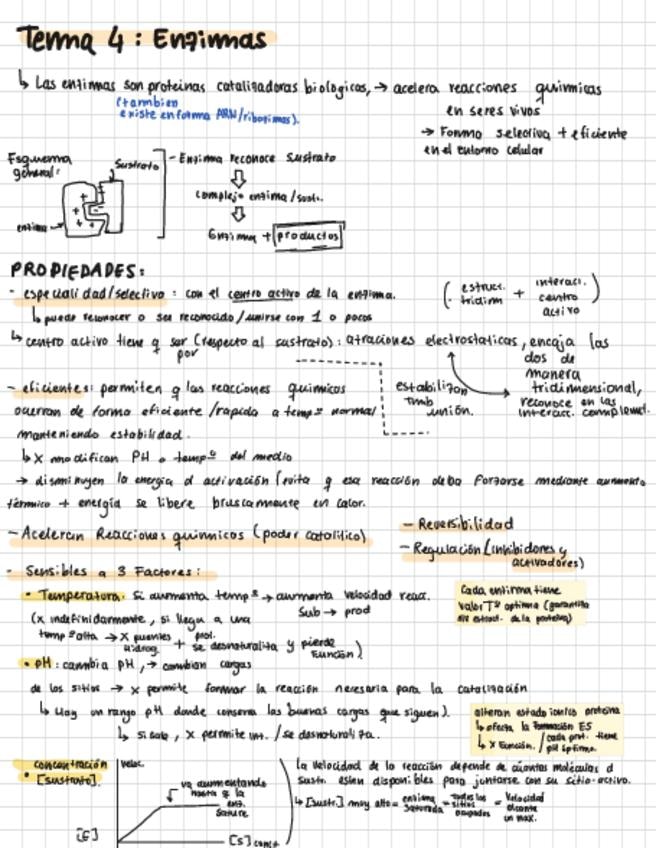 Tema 4 : Enzimas
↳ Las enzimas son proteinas catalizadoras biologicas, → acelera reacciones quimicas
(tambien
existe en forma ARN/ribozimas).
en seres vivos
→ Forma selectiva + eficiente
en el entorno celular
Esquema
general:
Sustrato
enzima
- Enzima reconoce sustrato
complejo enzima/sust.
Enzima + productos
PROPIEDADES:
- especialidad/selectivo : con el centro activo de la enzima.
( estruct. tridim + interacc. centro activo )
↳ puede reconocer o ser reconocido/unirse con 1 o pocos
↳ centro activo tiene q ser (respecto al sustrato): atracciones electrostaticas, encaja las
por
dos de
manera
tridimensional,
reconoce en las
interacc. complemet.
estabilizan
tmb
unión.
- eficientes: permiten q las reacciones quimicas
ocurran de forma eficiente/rapida a tempª normal
manteniendo estabilidad.
↳ X modifican PH o tempª del medio
→ disminuyen la energia d activación (evita q esa reacción deba forzarse mediante aumento
térmico + energía se libere bruscamente en calor.
- Aceleran Reacciones quimicas (poder catalitico)
- Reversibilidad
- Regulación (inhibidores y
activadores)
- Sensibles a 3 Factores:
• Temperatura: Si aumenta tempª → aumenta velocidad reacc.
Sub → prod
(x indefinidamente, si llega a una
tempª alta → X puentes hidrog. + prot. se desnaturaliza y pierde función)
Cada enzima tiene
valor Tª optima (garantiza
estruct. de la proteina)
• pH : cambia pH, → cambian cargas
de los sitios → x permite formar la reacción necesaria para la catalización
↳ Hay un rango pH donde conserva las buenas cargas que siguen).
↳ si sale, x permite int. / se desnaturaliza.
alteran estado ionico proteina
↳ afecta la formación ES
↳ X Función. / cada prot. tiene
pH óptimo.
• concentración
[sustrato].
veloc.
va aumentando
hasta q la
enz.
sature.
[E]
[S] conct
la velocidad de la reacción depende de cuantas moléculas d
sustr. esten disponibles para juntarse con su sitio-activo.
↳ [sustr.] muy alto = enzima saturada = todos los sitios ocupados = Velocidad alcanza un max.